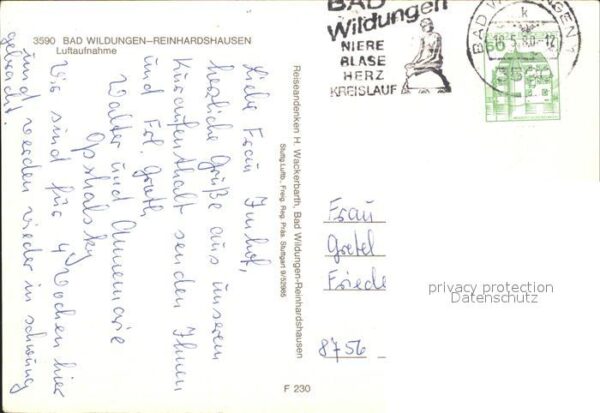 3590 BAD WILDUNGEN–REINHARDSHAUSEN
Luftaufnahme
Liebe Frau Imhof,
herzliche Grüße aus unserem
Kuraufenthalt senden Ihnen
und Frl. Greth
Walter und Annemarie
Ophalsky
Wir sind für 4 Wochen hier
und werden wieder in schwung
gebracht.
Reiseandenken H. Wackerbarth, Bad Wildungen-Reinhardshausen
Stuttg. Luftb. Freig. Reg. Präs. Stuttgart 9/52985
F 230
BAD
Wildungen
NIERE
BLASE
HERZ
KREISLAUF
BAD WILDUNGEN 1
k
16.5.80-12
3590
60
Frau
Gretel
Friede
8756
privacy protection
Datenschutz